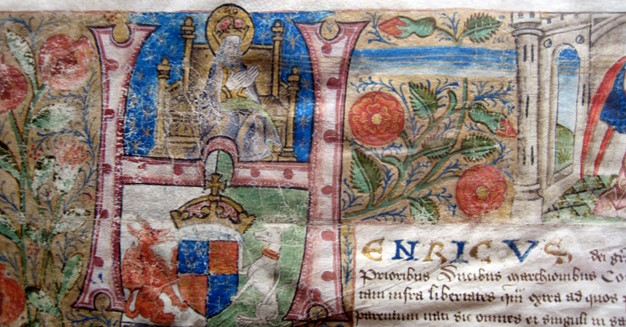 HENRICVS dei gr̄
Prioribus Ducibus marchionibus Co
tam infra libertates qͣm extra ad quos p
parentum nati sic omnes et singuli in